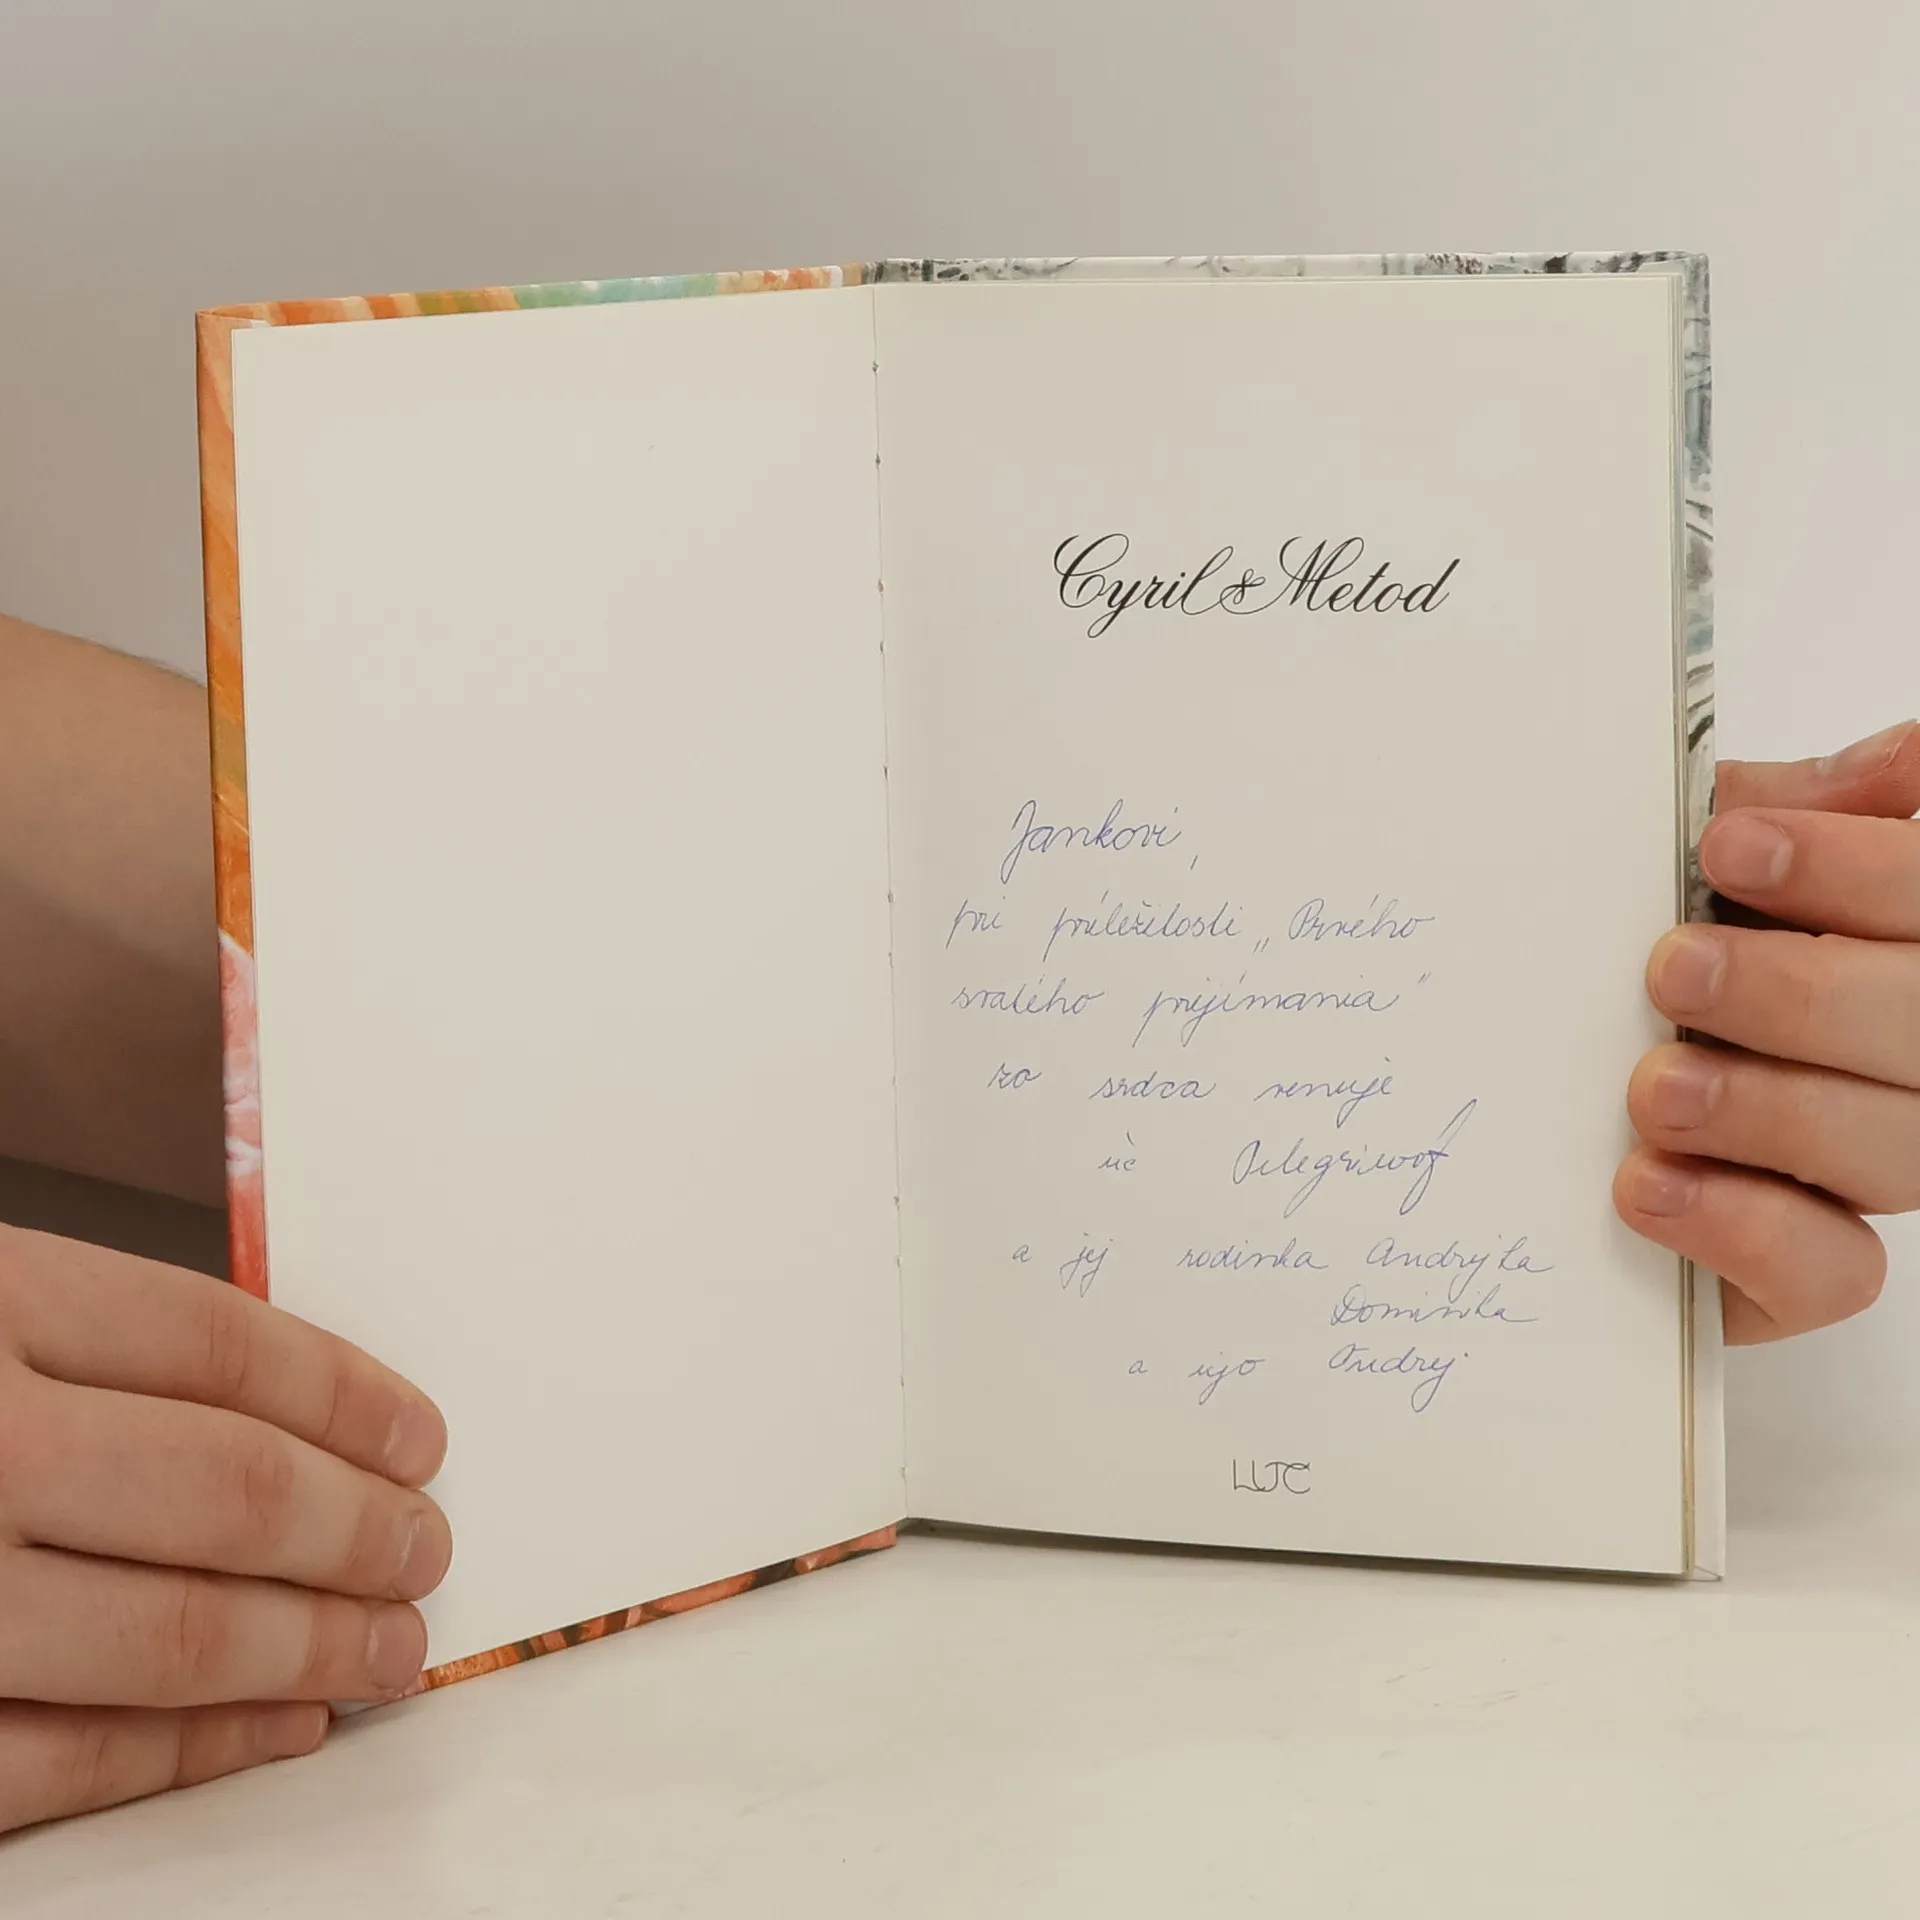 Cyril & Metod
Jankovi,
pri príležitosti „Prvého
svatého prijímania"
zo srdca venuje
uč
a jej rodinka Andrejka
Dominika
a ujo Andrej
LÚČ